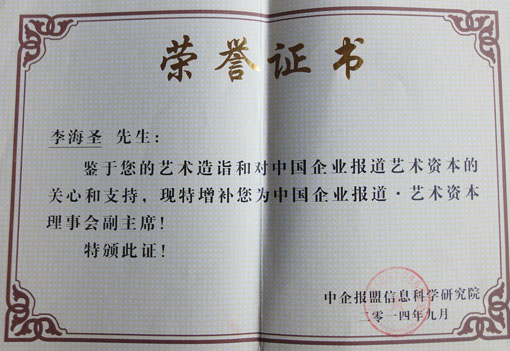 荣誉证书
李海圣 先生：
鉴于您的艺术造诣和对中国企业报道艺术资本的
关心和支持，现特增补您为中国企业报道·艺术资本
理事会副主席！
特颁此证！
中企报盟信息科学研究院
二零一四年九月